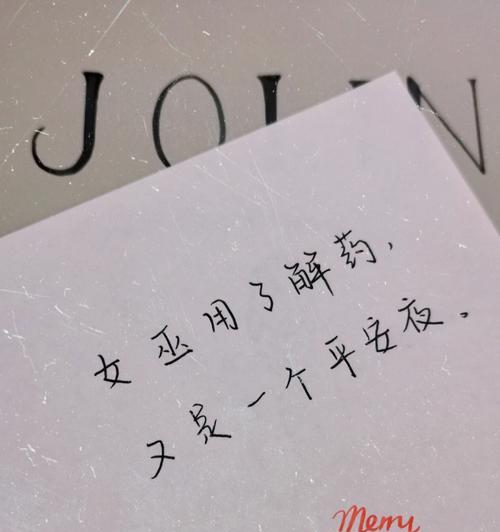 JOLIN
女巫用了解药，
又是一个平安夜。
Memy